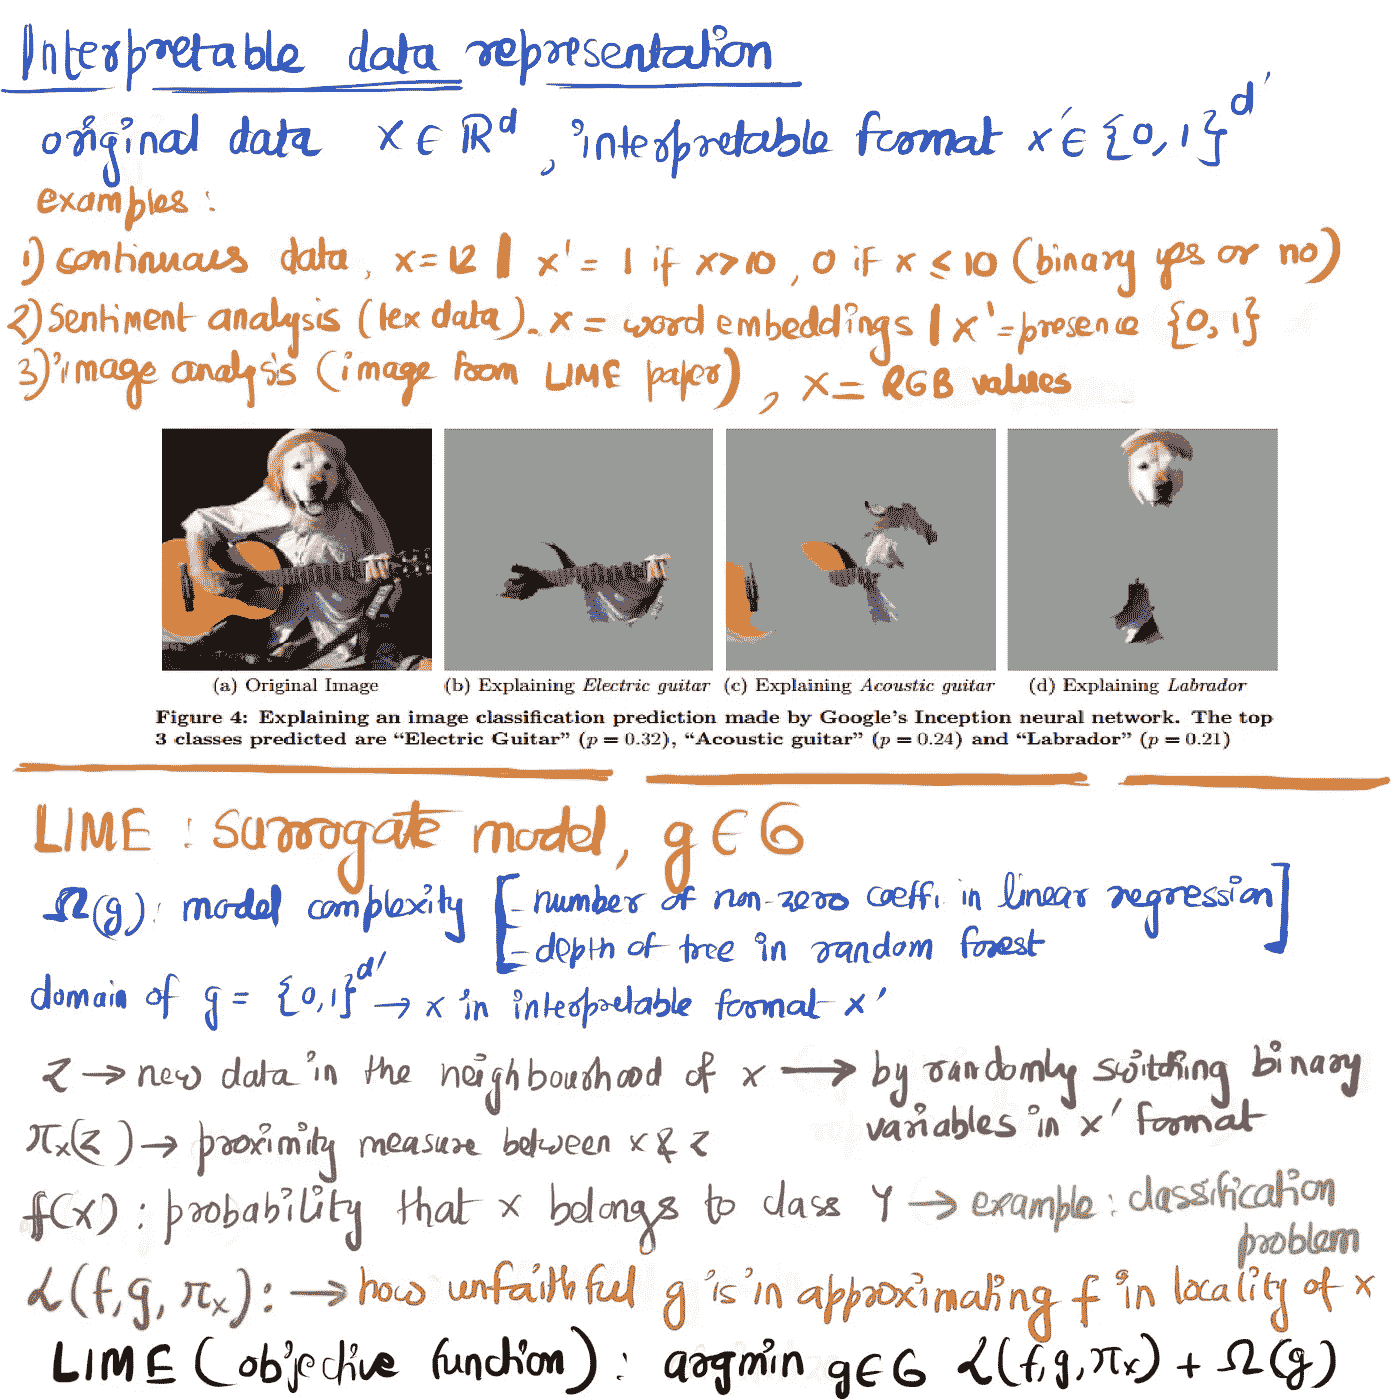 Interpretable data representation
original data x ∈ ℝ^d, interpretable format x' ∈ {0,1}^d'
examples :
1) continuous data, x = 12 | x' = 1 if x>10, 0 if x ≤ 10 (binary yes or no)
2) Sentiment analysis (tex data). x = word embeddings | x' = presence {0,1}
3) image analysis (image from LIME paper), x = RGB values
(a) Original Image (b) Explaining Electric guitar (c) Explaining Acoustic guitar (d) Explaining Labrador
Figure 4: Explaining an image classification prediction made by Google's Inception neural network. The top
3 classes predicted are “Electric Guitar” (p = 0.32), “Acoustic guitar” (p = 0.24) and “Labrador” (p = 0.21)
LIME : surrogate model, g ∈ G
Ω(g): model complexity [- number of non-zero coeffi. in linear regression]
- depth of tree in random forest
domain of g = {0,1}^d' → x in interpretable format x'
z → new data in the neighbourhood of x → by randomly switching binary
variables in x' format
π_x(z) → proximity measure between x & z
f(x) : probability that x belongs to class Y → example : classification
problem
L(f, g, π_x) : → how unfaithful g is in approximating f in locality of x
LIME (objective function) : argmin g∈G L(f,g,π_x) + Ω(g)